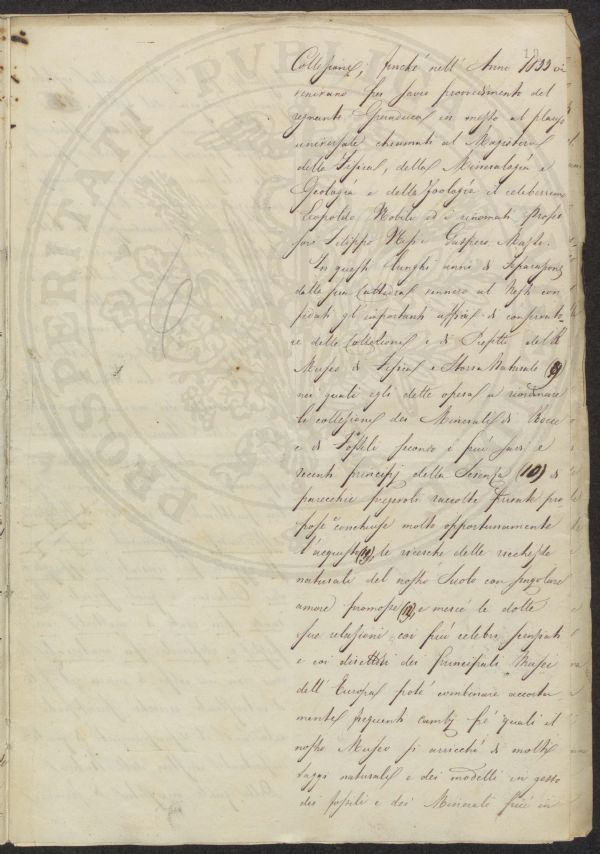 18
Collezione, finché nell' Anno 1833 vi
venivano per savio provvedimento del
regnante Granduca in mezzo al plauso
universale chiamati al Magistero
della Fisica, della Mineralogia e
Geologia e della Zoologia il celeberrimo
Leopoldo Nobili ed i rinomati Profes
sore Filippo Nesti Guspero Mazzi.
In questi lunghi anni di separazione
dalla sua Cattedra vennero al Nesti con
fidati gl' importanti uffici di conservato-
re delle Collezioni e di Prefetto del R.
Museo di Fisica e Storia Naturale (9)
nei quali egli dette opera a riordinare
le collezioni dei Minerali di Rocce
e di Fossili secondo i più savi e
recenti principj della Scienza (10) di
parecchie pregevoli raccolte private pro
pose e conchiuse molto opportunamente
l'acquisto (11), le ricerche delle ricchezze
naturali del nostro Suolo con singolare
amore promosse (12), e mercé le dotte
sue relazioni coi più celebri scienziati
e coi direttori dei principali Musei
dell' Europa poté combinare accorta
mente frequenti cambj pe' quali il
nostro Museo si arricchì di molti
saggi naturali e dei modelli in gesso
dei fossili e dei Minerali più in
PVBLI
PROSPERITAT